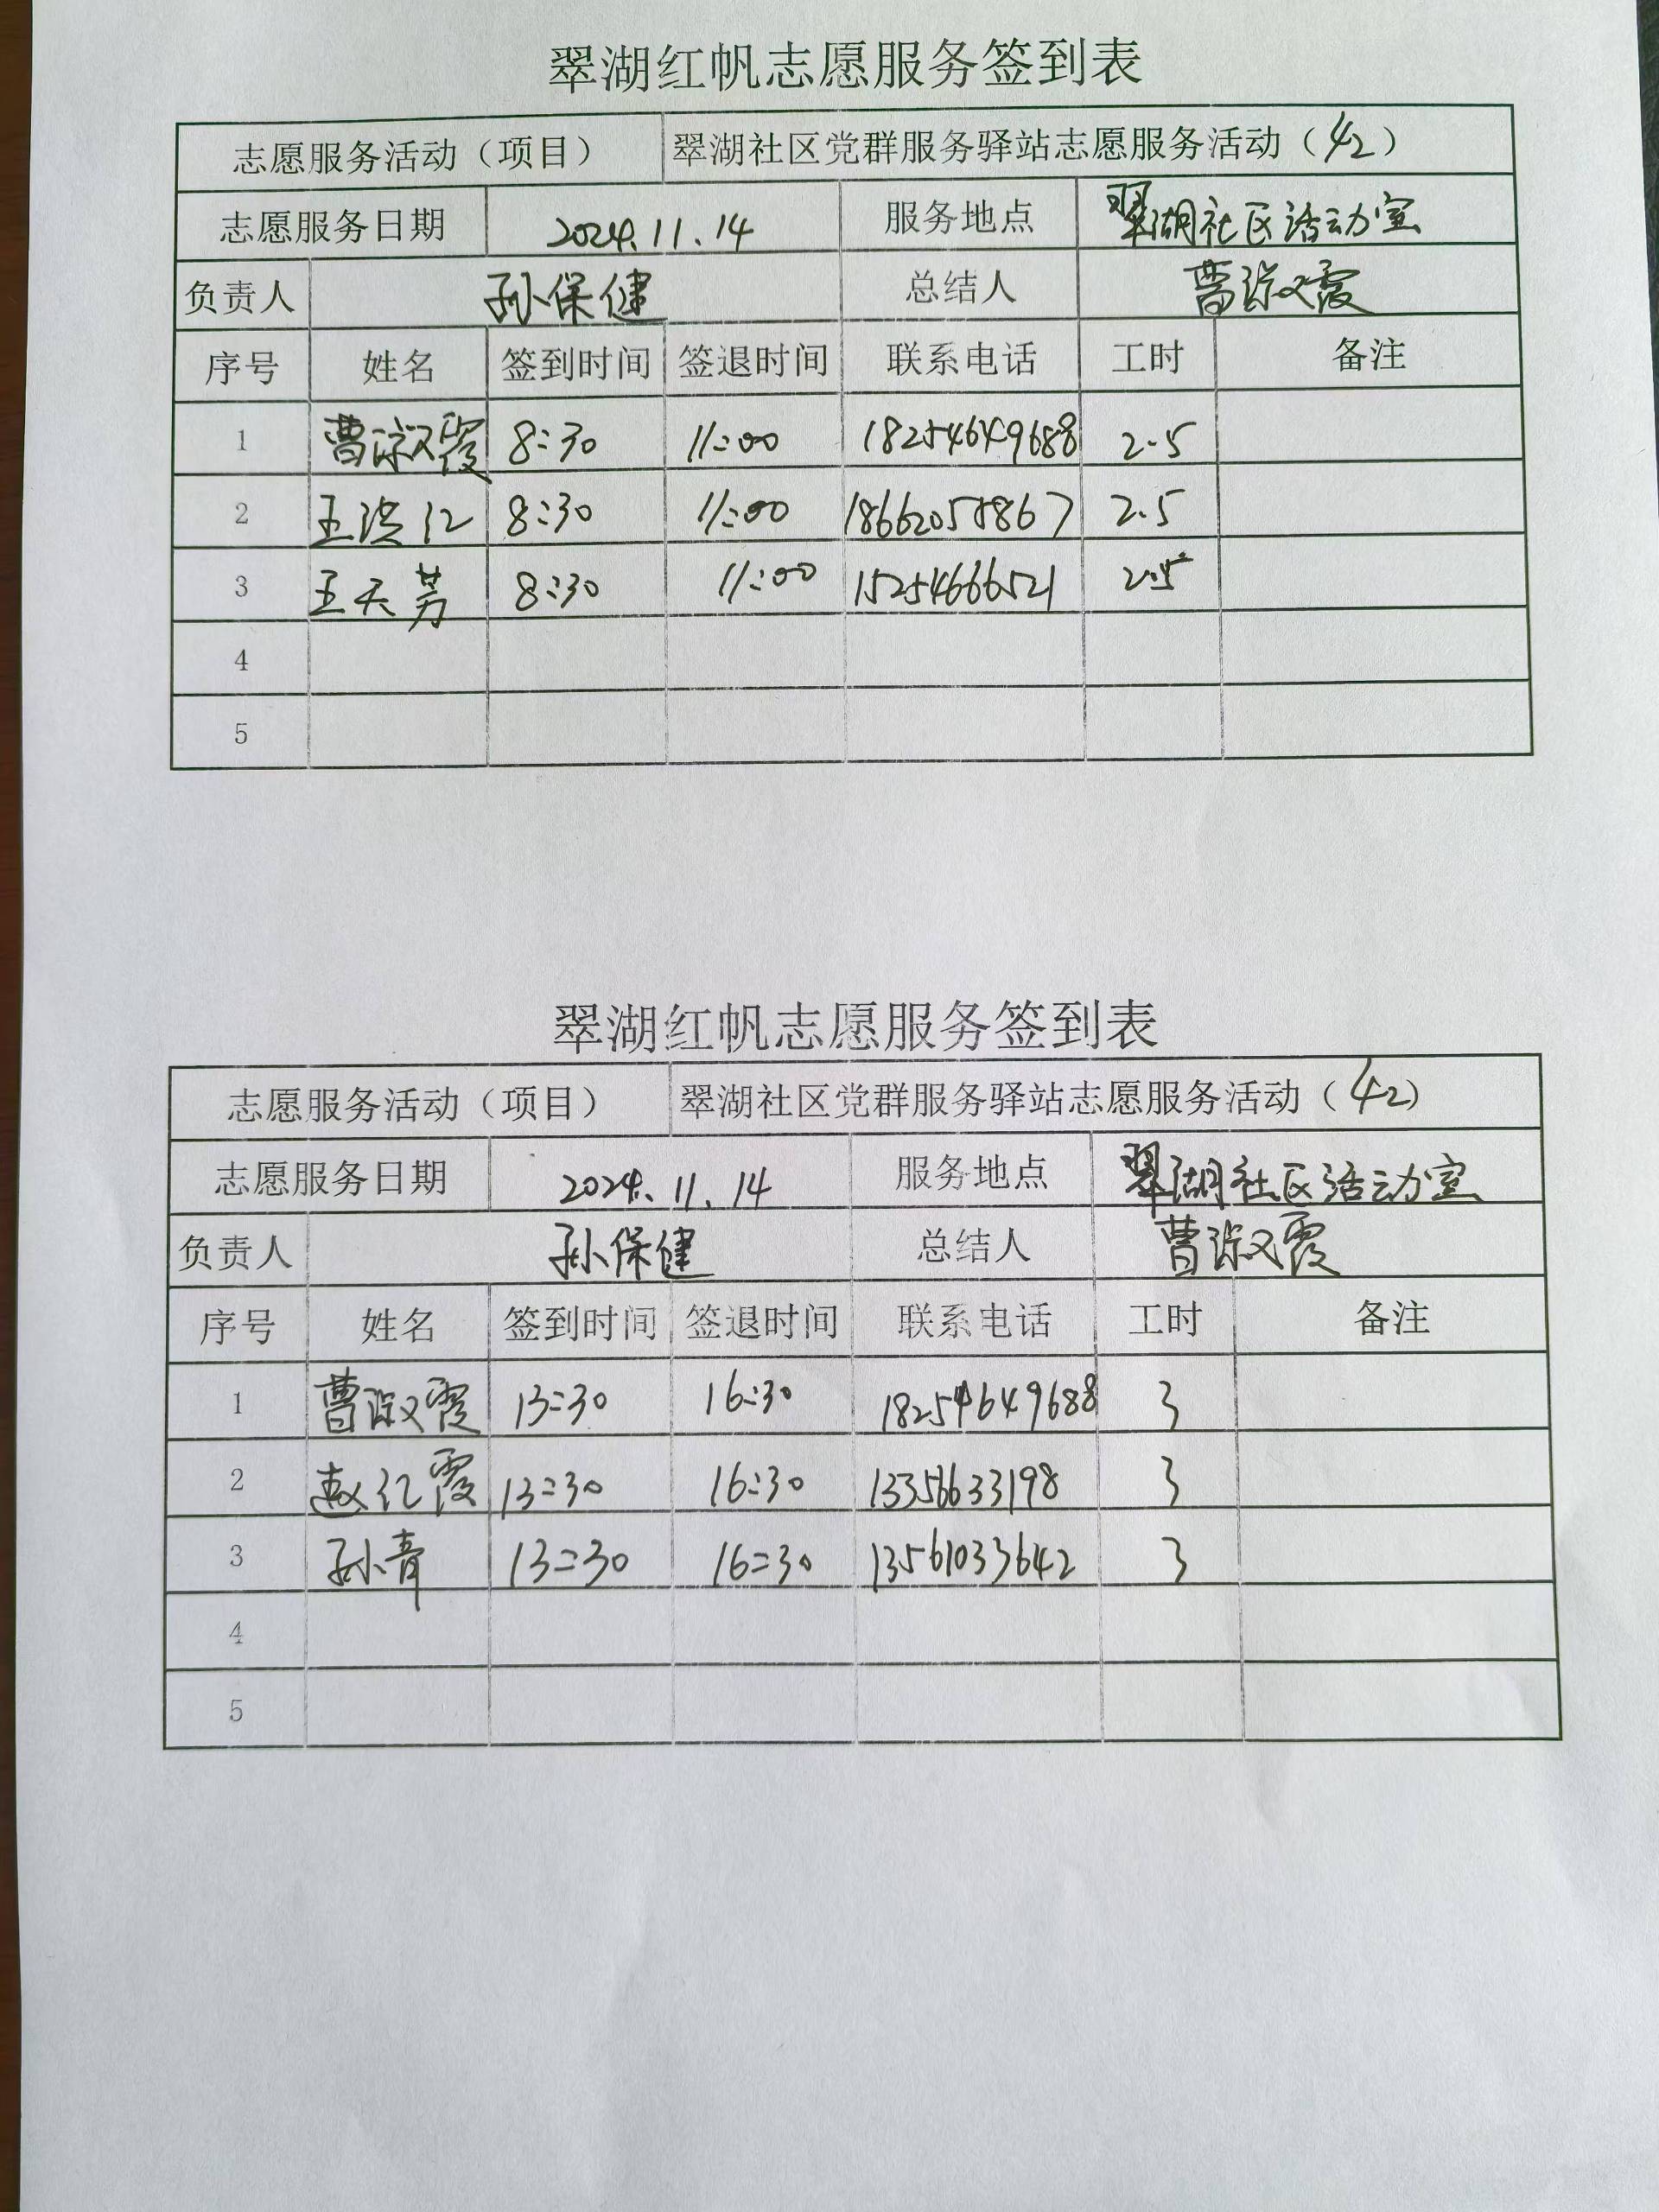 翠湖红帆志愿服务签到表
志愿服务活动（项目） 翠湖社区党群服务驿站志愿服务活动（42）
志愿服务日期 2024.11.14 服务地点 翠湖社区活动室
负责人 孙保健 总结人 曹淑霞
序号 姓名 签到时间 签退时间 联系电话 工时 备注
1 曹淑霞 8:30 11:00 18254649688 2.5
2 王洪江 8:30 11:00 18662058867 2.5
3 王天芳 8:30 11:00 15254666521 2.5
4
5
翠湖红帆志愿服务签到表
志愿服务活动（项目） 翠湖社区党群服务驿站志愿服务活动（42）
志愿服务日期 2024.11.14 服务地点 翠湖社区活动室
负责人 孙保健 总结人 曹淑霞
序号 姓名 签到时间 签退时间 联系电话 工时 备注
1 曹淑霞 13:30 16:30 18254649688 3
2 赵红霞 13:30 16:30 13356633198 3
3 孙青 13:30 16:30 13561033642 3
4
5